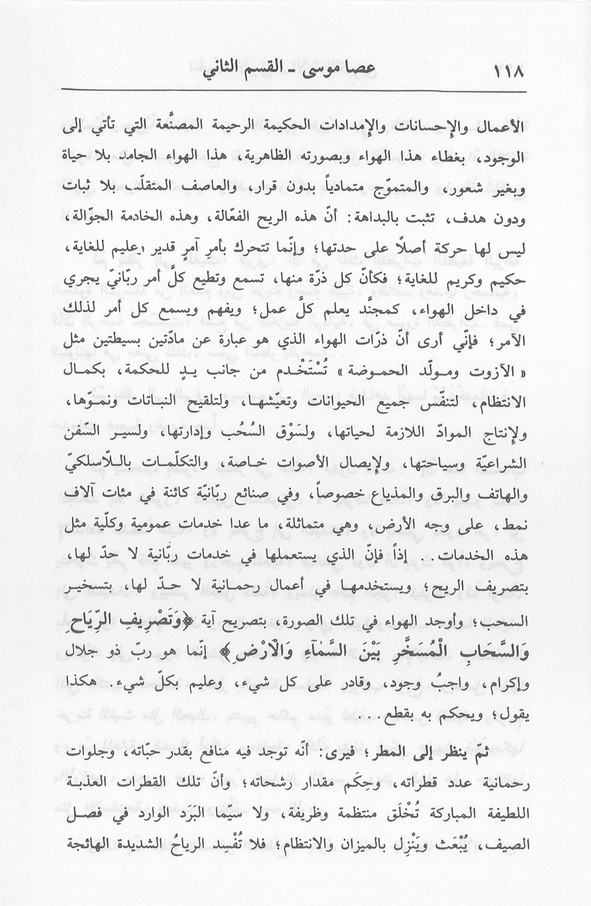 ١١٨
عصا موسى ـ القسم الثاني
الأعمال والإحسانات والإمدادات الحكيمة الرحيمة المصنَّعة التي تأتي إلى
الوجود، بغطاء هذا الهواء وبصورته الظاهرية، هذا الهواء الجامد بلا حياة
وبغير شعور، والمتموّج متمادياً بدون قرار، والعاصف المتقلّب بلا ثبات
ودون هدف، تثبت بالبداهة: أنّ هذه الريح الفعّالة، وهذه الخادمة الجوّالة،
ليس لها حركة أصلاً على حدتها؛ وإنّما تتحرك بأمرِ آمرٍ قدير وعليم للغاية،
حكيم وكريم للغاية؛ فكأنّ كلّ ذرّة منها، تسمع وتطيع كلَّ أمر ربّانيّ يجري
في داخل الهواء، كمجنَّد يعلم كلَّ عمل؛ ويفهم ويسمع كل أمر لذلك
الآمر؛ فإنّي أرى أنّ ذرّات الهواء الذي هو عبارة عن مادّتين بسيطتين مثل
«الآزوت ومولّد الحموضة» تُسْتَخْدم من جانب يدٍ للحكمة، بكمال
الانتظام، لتنفّس جميع الحيوانات وتعيّشها، ولتلقيح النباتات ونموّها،
ولإنتاج الموادّ اللازمة لحياتها، ولسَوْق السُحُب وإدارتها، ولسير السّفن
الشراعيّة وسياحتها، ولإيصال الأصوات خاصة، والتكلّمات باللاسلكيّ
والهاتف والبرق والمذياع خصوصاً، وفي صنائع ربّانيّة كائنة في مئات آلاف
نمط، على وجه الأرض، وهي متماثلة، ما عدا خدمات عمومية وكلّية مثل
هذه الخدمات.. إذاً فإنّ الذي يستعملها في خدمات ربّانية لا حدّ لها،
بتصريف الريح؛ ويستخدمها في أعمال رحمانية لا حدّ لها، بتسخير
السحب؛ وأوجد الهواء في تلك الصورة، بتصريح آية ﴿وَتَصْرِيفِ الرِّيَاحِ
وَالسَّحَابِ الْمُسَخَّرِ بَيْنَ السَّمَآءِ وَالْاَرْضِ﴾ إنّما هو ربّ ذو جلال
وإكرام، واجبُ وجود، وقادر على كل شيء، وعليم بكلّ شيء. هكذا
يقول؛ ويحكم به بقطع...
ثمّ ينظر إلى المطر؛ فيرى: أنّه توجد فيه منافع بقدر حبّاته، وجلوات
رحمانية عدد قطراته، وحِكَم مقدار رشحاته؛ وأنّ تلك القطرات العذبة
اللطيفة المباركة تُخْلَق منتظمة وظريفة، ولا سيّما البَرَد الوارد في فصل
الصيف، يُبْعَث ويَنْزِل بالميزان والانتظام؛ فلا تُفْسِد الرياحُ الشديدة الهائجة